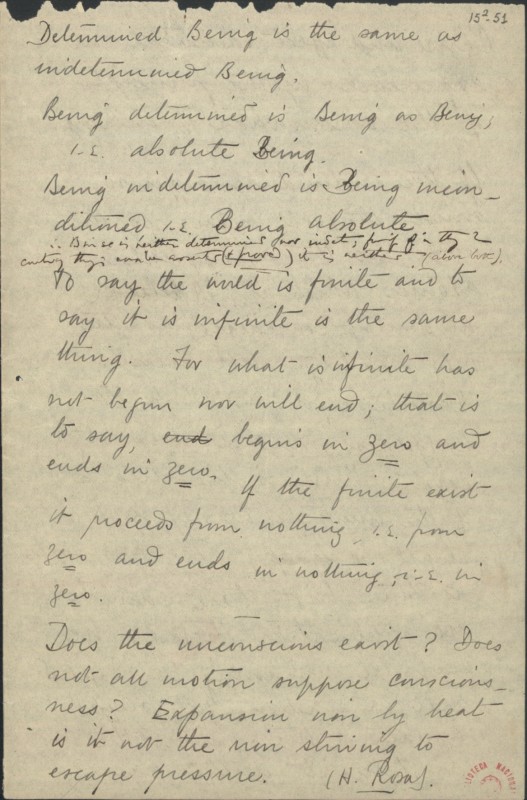 15²-51
Determined Being is the same as
indetermined Being.
Being determined is Being as Being;
i.e. absolute Being.
Being indetermined is Being incon-
ditioned i.e. Being absolute
∴ B is neither determined nor indet; for if in
two are asserted (& proved) it is neither (above two).
To say the world is finite and to
say it is infinite is the same
thing. For what is infinite has
not begun nor will end; that is
to say, end begins in zero and
ends in zero. If the finite exist
it proceeds from nothing, i.e. from
zero and ends in nothing, i.e. in
zero.
Does the unconscious exist? Does
not all motion suppose conscious-
ness? Expansion by heat
is it not the striving to
escape pressure. (H. Rosa).